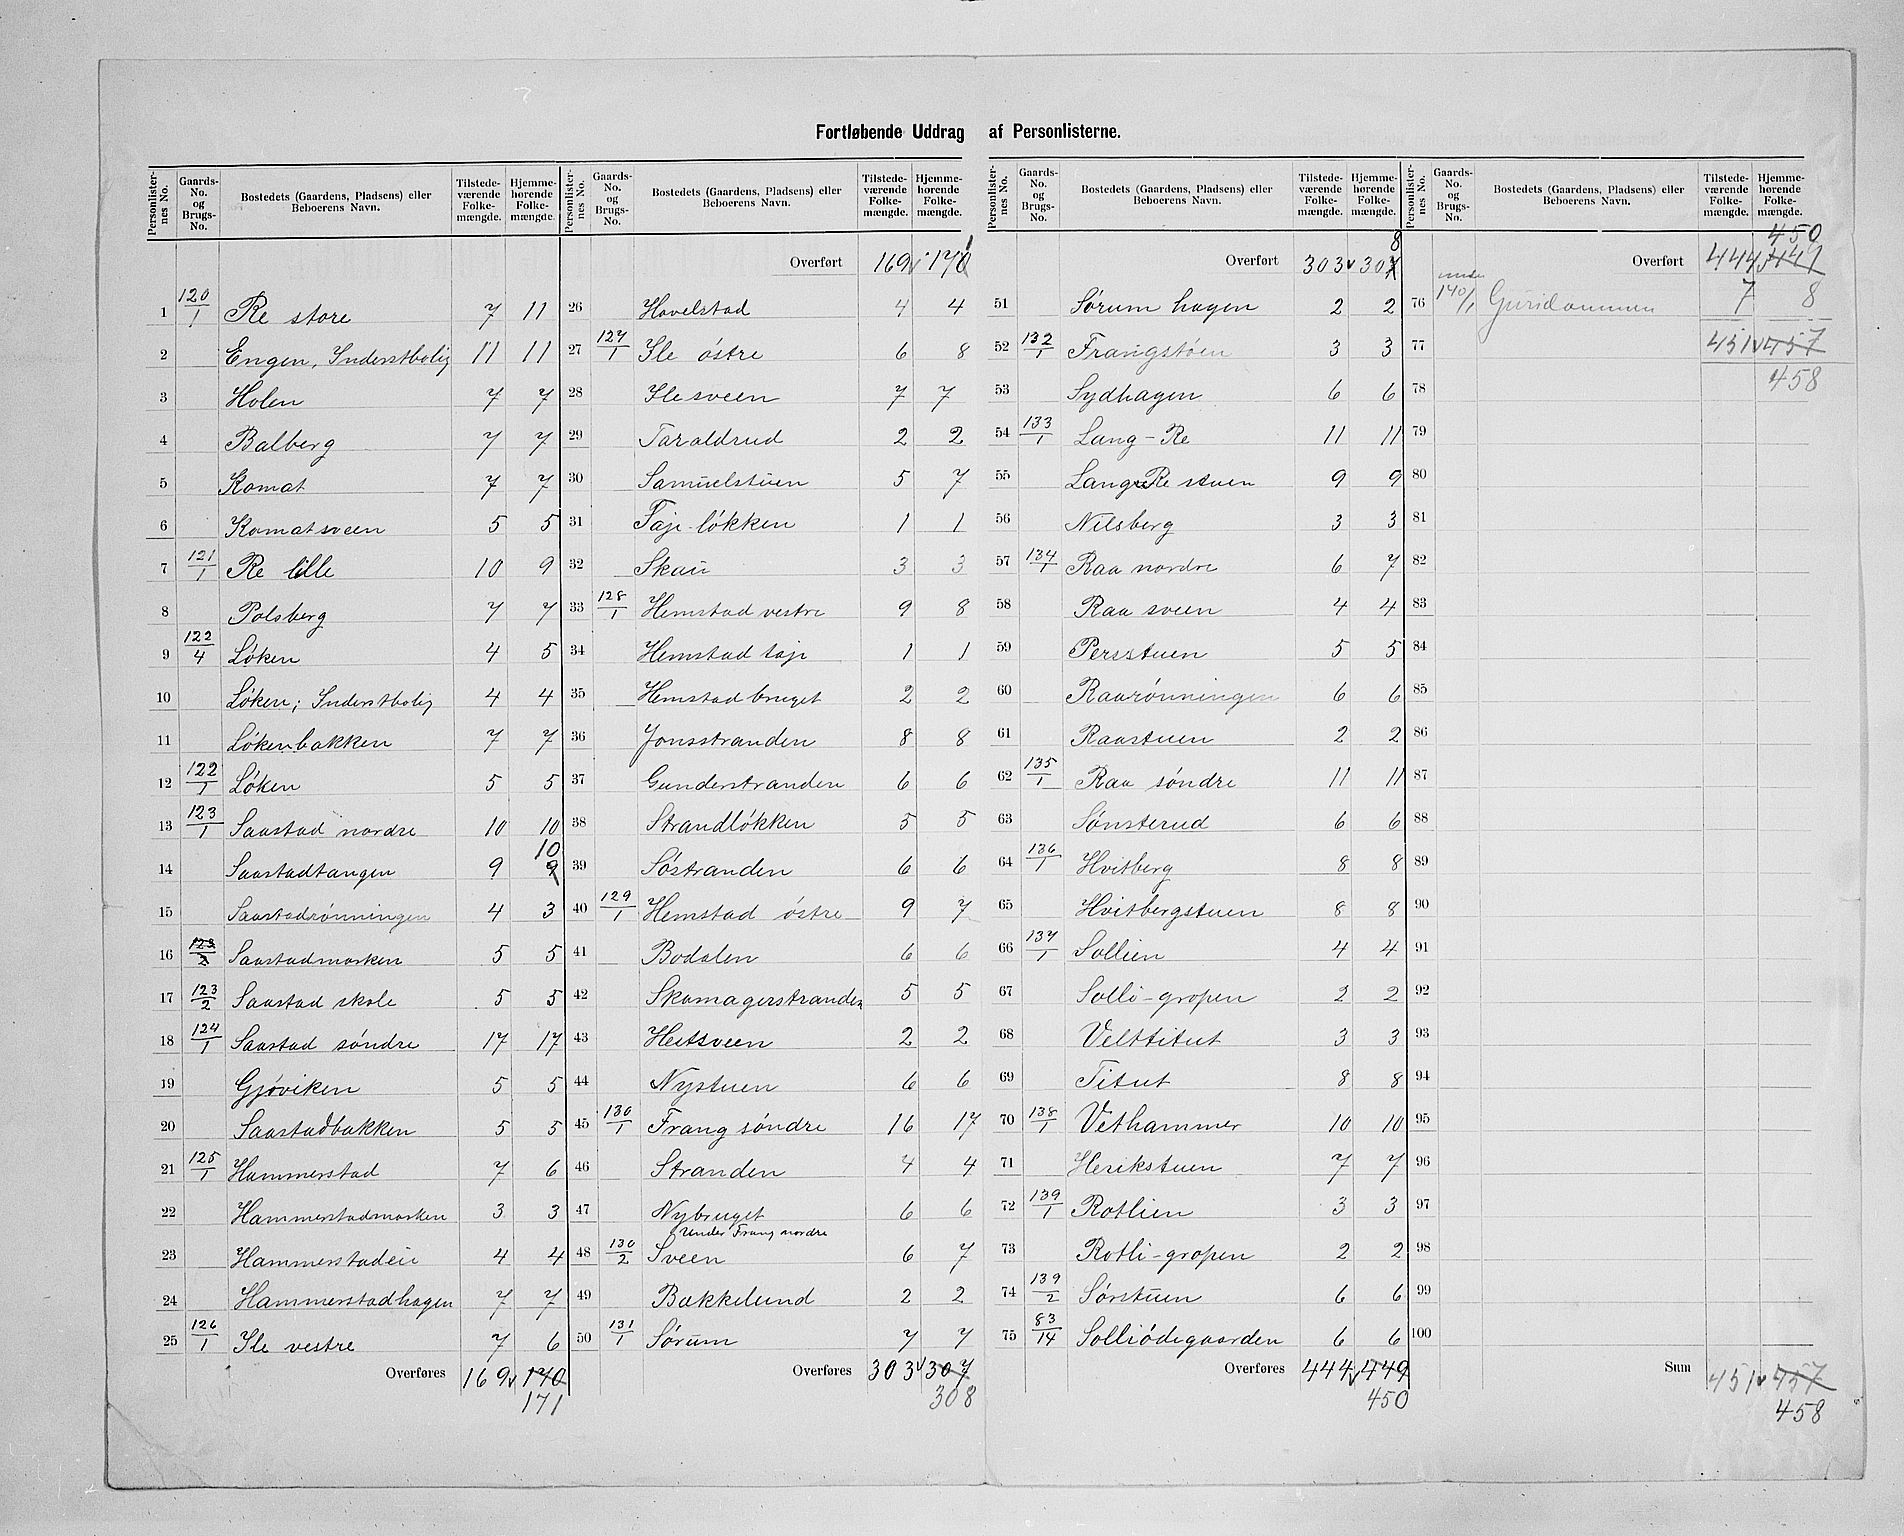 Fortløbende Uddrag af Personlisterne.
Personlisternes No. Gaards-No. og Brugs-No. Bostedets (Gaardens, Pladsens) eller Beboerens Navn. Tilstedeværende Folkemængde. Hjemmehørende Folkemængde.
1 120/1 Re store 7 11
2 Engen, Inderstbolig 11 11
3 Holen 7 7
4 Balberg 7 7
5 Komat 7 7
6 Komatsveen 5 5
7 121/1 Re lille 10 9
8 Polsberg 7 7
9 122/4 Løken 4 5
10 Løken; Inderstbolig 4 4
11 Løkenbakken 7 7
12 122/1 Løken 5 5
13 123/1 Saastad nordre 10 10
14 Saastadtangen 9 9 10
15 Saastadrønningen 4 3
16 123/2 Saastadmarken 5 5
17 123/2 Saastad skole 5 5
18 124/1 Saastad søndre 17 17
19 Gjøviken 5 5
20 Saastadbakken 5 5
21 125/1 Hammerstad 7 6
22 Hammerstadmarken 3 3
23 Hammerstadeie 4 4
24 Hammerstadhagen 7 7
25 126/1 Ile vestre 7 6
Overføres 169 170
171
Personlisternes No. Gaards-No. og Brugs-No. Bostedets (Gaardens, Pladsens) eller Beboerens Navn. Tilstedeværende Folkemængde. Hjemmehørende Folkemængde.
Overført 169 170 1
26 Hovelstad 4 4
27 127/1 Ile østre 6 8
28 Ilesveen 7 7
29 Taraldrud 2 2
30 Samuelstuen 5 7
31 Taje-løkken 1 1
32 Skau 3 3
33 128/1 Hemstad vestre 9 8
34 Hemstad taje 1 1
35 Hemstad bruget 2 2
36 Jonsstranden 8 8
37 Gunderstranden 6 6
38 Strandløkken 5 5
39 Søstranden 6 6
40 129/1 Hemstad østre 9 7
41 Bodalen 6 6
42 Skomagerstranden 5 5
43 Heitsveen 2 2
44 Nystuen 6 6
45 130/1 Frang søndre 16 17
46 Stranden 4 4
47 Nybruget 6 6
Under Frang nordre
48 130/2 Sveen 6 7
49 Bækkelund 2 2
50 131/1 Sørum 7 7
Overføres 303 307
308
Personlisternes No. Gaards-No. og Brugs-No. Bostedets (Gaardens, Pladsens) eller Beboerens Navn. Tilstedeværende Folkemængde. Hjemmehørende Folkemængde.
Overført 303 307 8
51 Sørum hagen 2 2
52 132/1 Frangstøen 3 3
53 Sydhagen 6 6
54 133/1 Lang-Re 11 11
55 Lang Re stuen 9 9
56 Nilsberg 3 3
57 134/1 Raa nordre 6 7
58 Raa sveen 4 4
59 Persstuen 5 5
60 Raarønningen 6 6
61 Raastuen 2 2
62 135/1 Raa søndre 11 11
63 Sønsterud 6 6
64 136/1 Hvitberg 8 8
65 Hvitbergstuen 8 8
66 137/1 Sollien 4 4
67 Solli-gropen 2 2
68 Velttitut 3 3
69 Titut 8 8
70 138/1 Vethammer 10 10
71 Herikstuen 7 7
72 139/1 Rotlien 3 3
73 Rotli-gropen 2 2
74 139/2 Sørstuen 6 6
75 83/14 Solliødegaarden 6 6
Overføres 444 449
450
Personlisternes No. Gaards-No. og Brugs-No. Bostedets (Gaardens, Pladsens) eller Beboerens Navn. Tilstedeværende Folkemængde. Hjemmehørende Folkemængde.
450
Overført 444 449
under
76 140/1 Guridammen 7 8
77 451 457
78 458
79
80
81
82
83
84
85
86
87
88
89
90
91
92
93
94
95
96
97
98
99
100
Sum 451 457
458